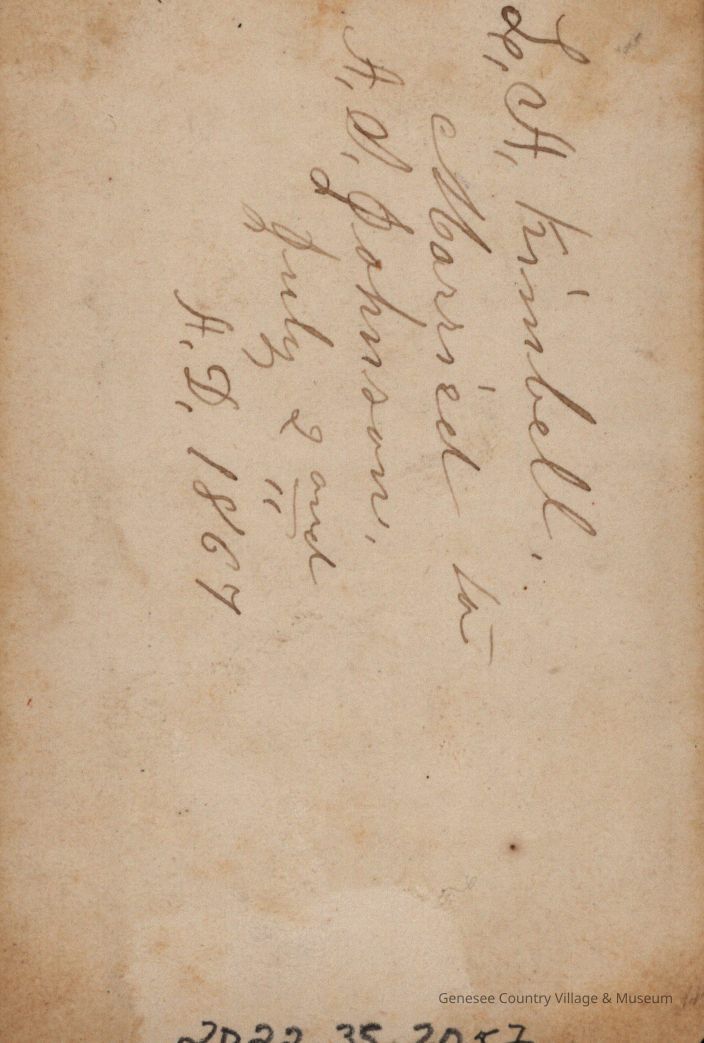 L, A, Kimbell.
Married to
A, S, Johnson.
July 2 ond
A, D, 1867
Genesee Country Village & Museum
2022.35.2057